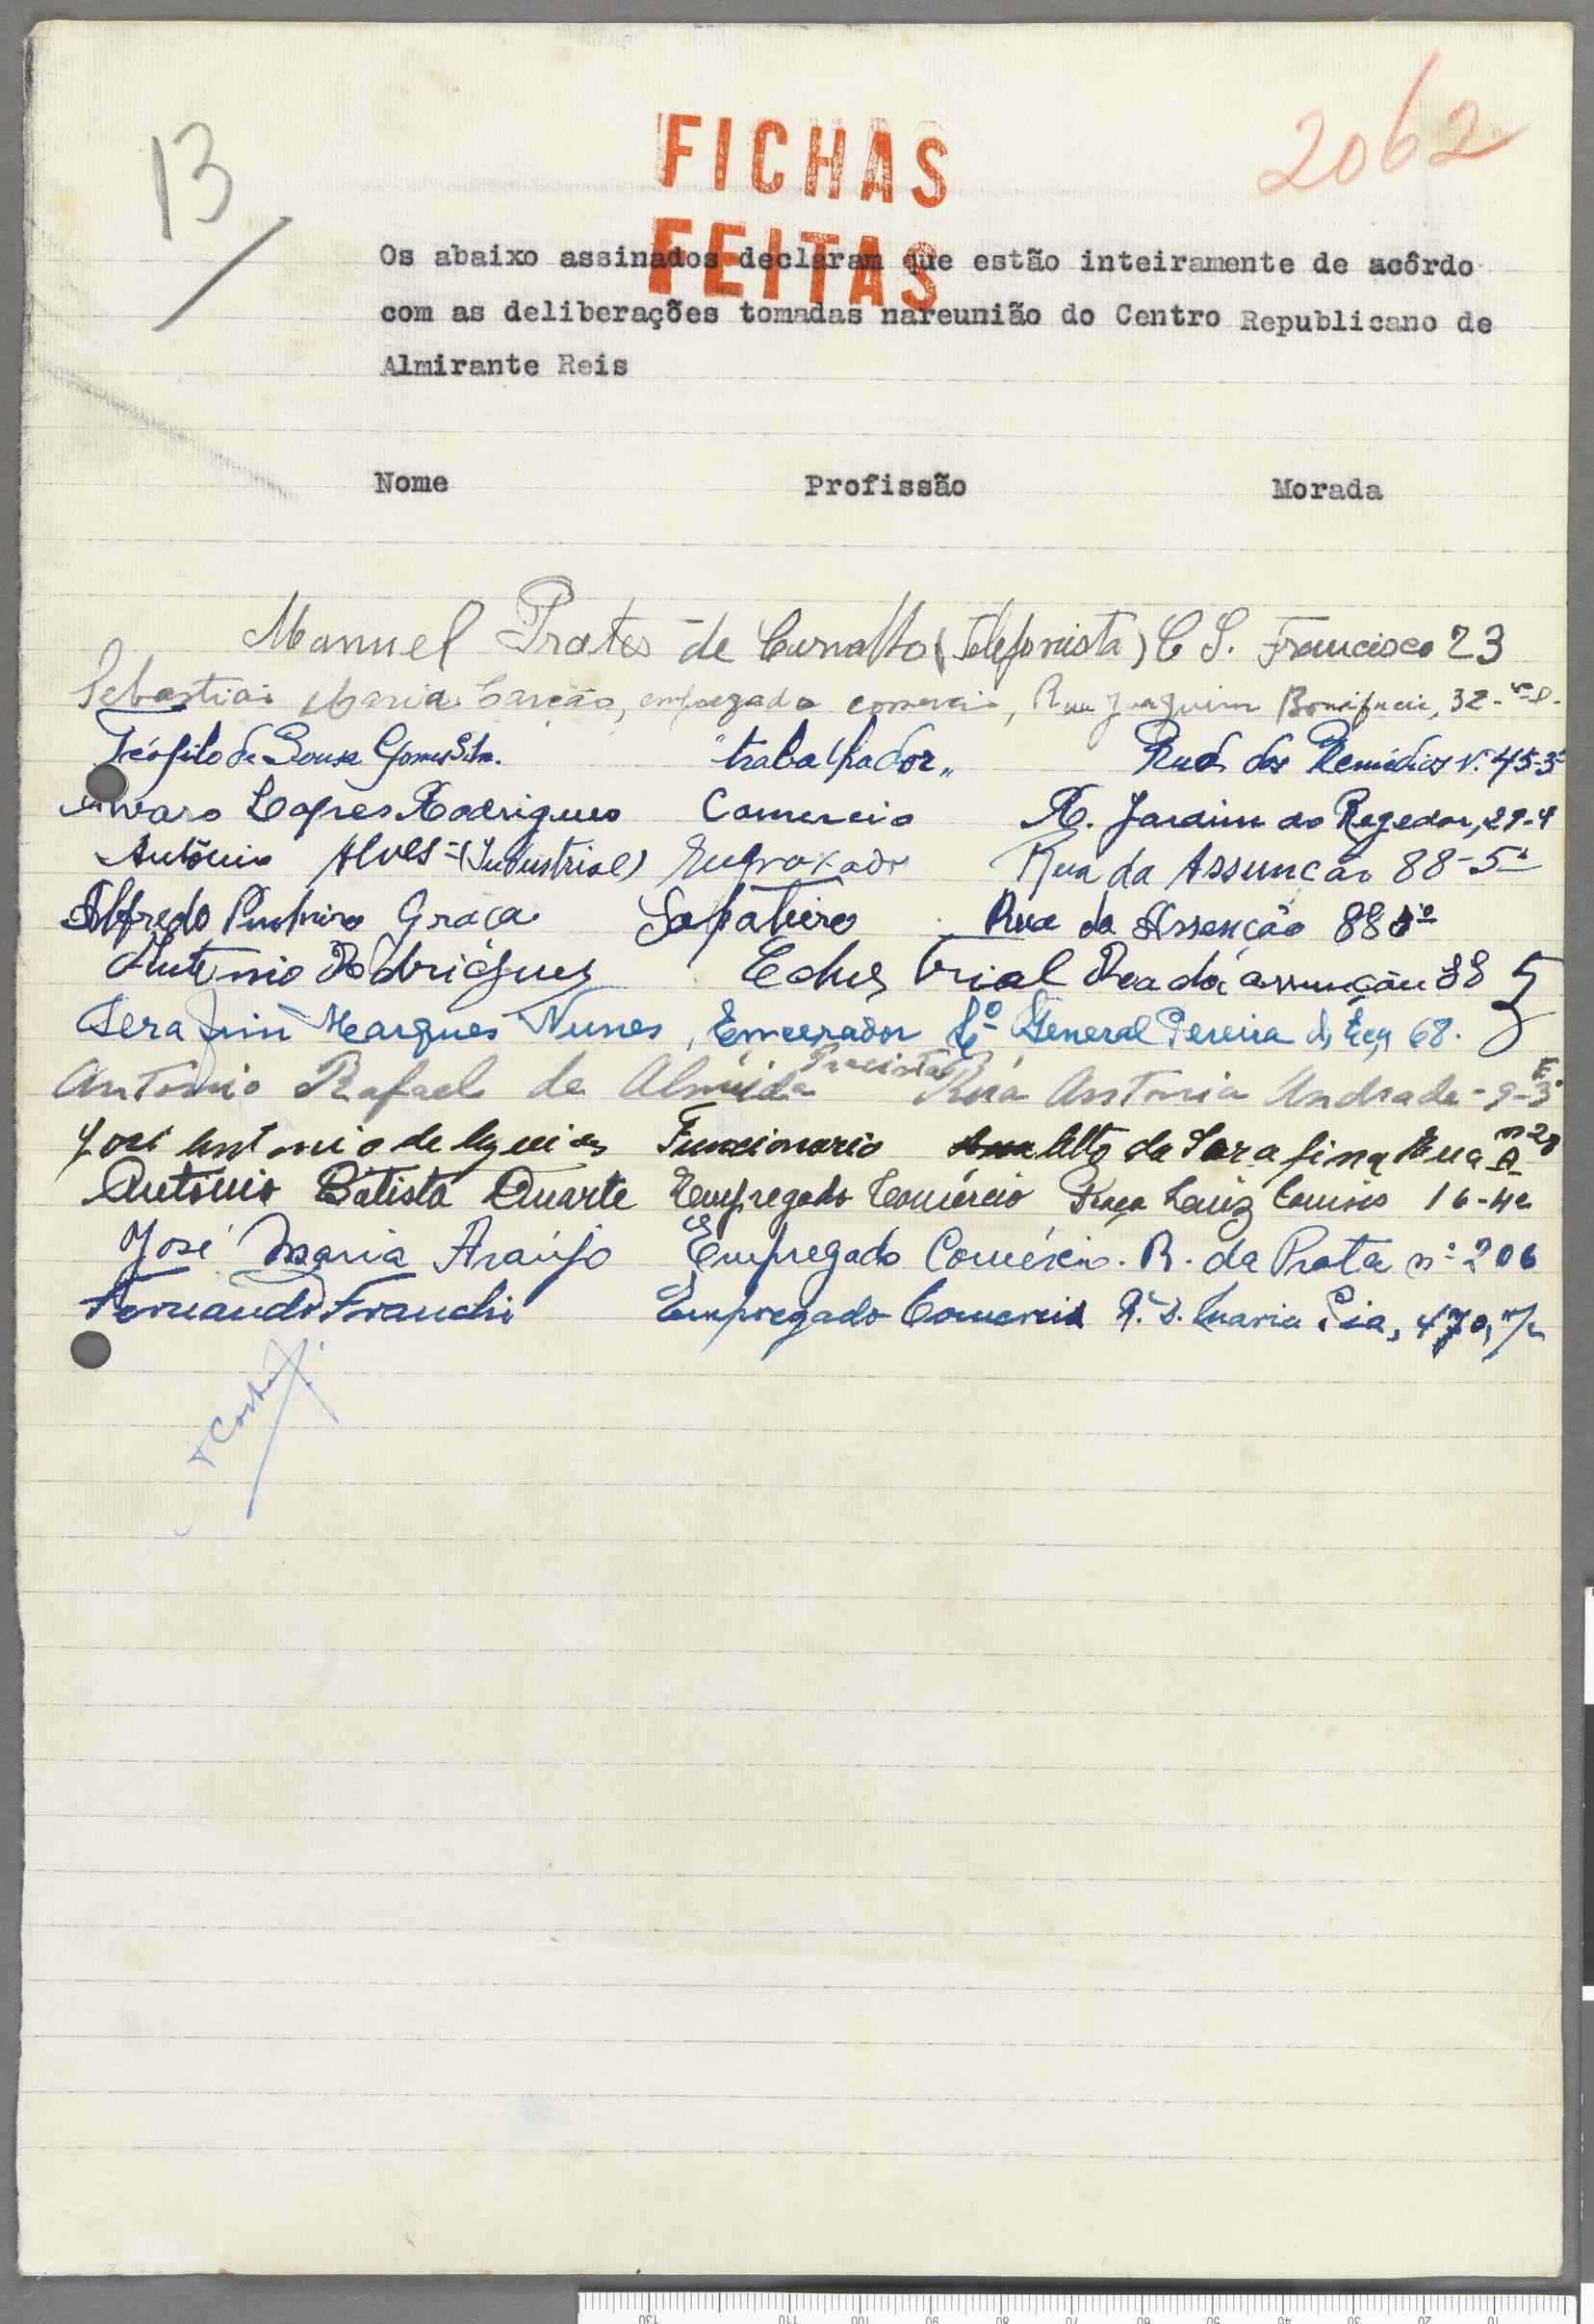 13
2062
FICHAS
FEITAS
Os abaixo assinados declaram que estão inteiramente de acôrdo
com as deliberações tomadas nareunião do Centro Republicano de
Almirante Reis
Nome Profissão Morada
Manuel Prates de Carvalho (Telefonista) C S. Francisco 23
Sebastião Maria Garção, empregado comercio, Rua Joaquim Bonifacio, 32-
Teófilo de Sousa Gomes Silva. "trabalhador„ Rua dos Remédios Nº 45-3º
Alvaro Lopes Rodrigues Comercio R. Jardim do Regedor, 29-4
António Alves-(Industrial) Engraxador Rua da Assuncão 88-5º
Alfredo Pinheiro Graça Sapateiro Rua da Assenção 88 5º
Antonio Rodrigues Edustrial Rua da assunção 88 5
Serafim Marques Nunes, Encerador General Pereira d, Eça 68.
Antonio Rafael de Almeida Pracista Rua Antonia Andrade-9-3º E
José Antonio de Funcionario Alto da Sarafina Rua A nº 28
António Batista Duarte Empregado Comércio Praça Luiz Camões 16-4º
José Maria Araújo Empregado Comércio. R. da Prata nº 206
Fernando Franchi Empregado Comercio R. D. Maria Pia, 470,